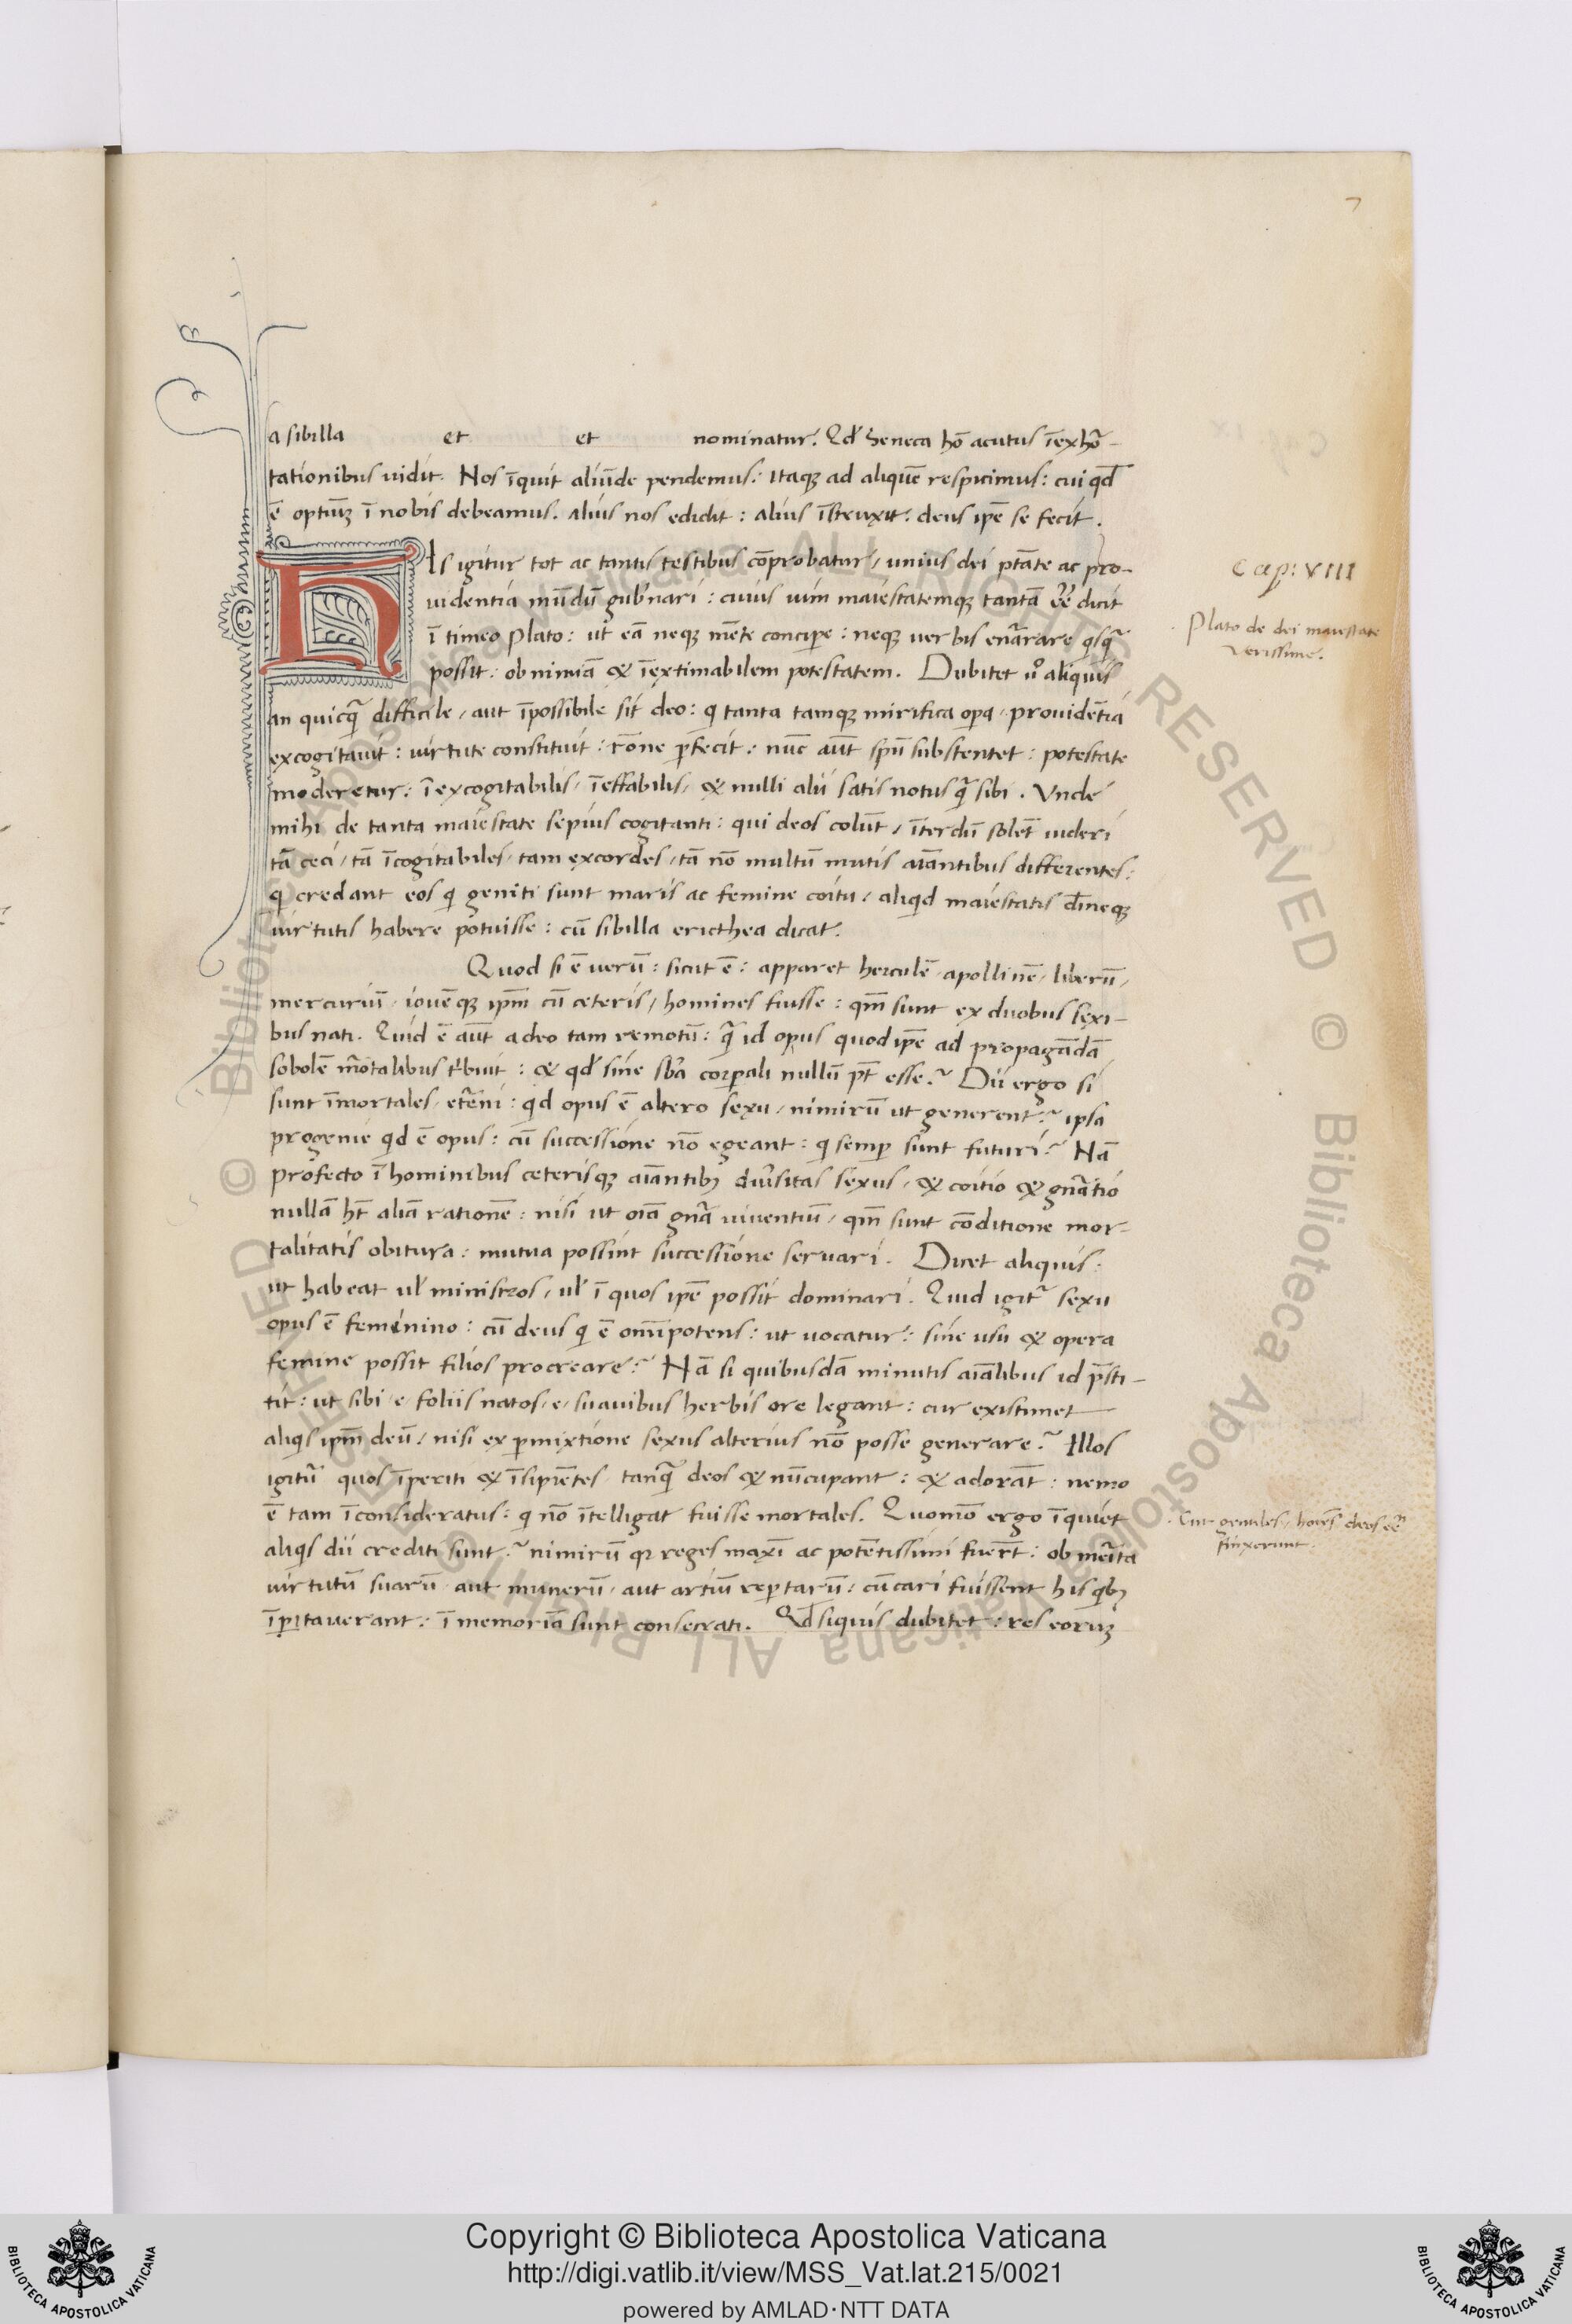 7
a sibilla et et nominatur. Qd' Seneca hō acutus īexhō-
tationibus uidit. Nos īquit aliūde pendemus: itaqꝫ ad aliquē respicimus: cui qd̄
ē optiūꝫ ī nobis debeamus. alius nos edidit: alius īstruxit: deus ip̄e se fecit.
HIs igitur tot ac tantis testibus cōprobatur, unius dei ptāte ac pro-
uidentia mūdū gub'nari: cuius uim maiestatemqꝫ tantā eē dicit
ī timeo plato: ut eā neqꝫ mēte concipe: neqꝫ uerbis enārare qsq̄
possit: ob nimiā & īextimabilem potestatem. Dubitet uº aliquis
an quicq̄ difficile, aut īpossibile sit deo: q tanta tamqꝫ mirifica opa, prouidētia
excogitauit: uirtute constituit: rōne pfecit: nūc aūt spū substentet: potestate
moderetur: īexcogitabilis, īeffabilis, & nulli alii satis notus q̄ sibi. Vnde
mihi de tanta maiestate sepius cogitanti: qui deos colūt, īterdū solēt uideri
tā ceci, tā īcogitabiles, tam excordes, tā nō multū mutis aīantibus differentes:
q credant eos q geniti sunt maris ac femine coitu, aliqd maiestatis dīneqꝫ
uirtutis habere potuisse: cū sibilla ericthea dicat.
Quod si ē uerū: sicut ē: apparet herculē, apollinē, liberū,
mercuriū, iouēqꝫ ip̄m cū ceteris, homines fuisse: qm̄ sunt ex duobus sexi-
bus nati. Quid ē aūt adeo tam remotū: q̄ id opus quod ip̄e ad propagādā
sobolē mōtalibus tbuit: & qd' sine sbā corpali nullū pt̄ esse? Dii ergo si
sunt īmortales, etēni: qd opus ē altero sexu, nimirū ut generent? ipsa
progenie qd ē opus: cū successione nō egeant: q semp sunt futuri? Nā
profecto ī hominibus ceterisqꝫ aīantibꝫ diu'sitas sexus, & coitio & gnātio
nullā ht̄ aliā rationē: nisi ut oīa gnā uiuentiū, qm̄ sunt cōditione mor-
talitatis obitura: mutua possint successione seruari. Dicet aliquis:
ut habeat ul' ministros, ul' ī quos ip̄e possit dominari. Quid igit̄ sexu
opus ē feminino: cū deus q ē omīpotens: ut uocatur: sine usu & opera
femine possit filios procreare? Nā si quibusdā minutis aīalibus id p̄sti-
tit: ut sibi e foliis natos, e, suauibus herbis ore legant: cur existimet
aliqs ip̄m deū, nisi ex pmixtione sexus alterius nō posse generare? Illos
igitū quos īperiti & īsipiētes, tanq̄ deos & nūcupant: & adorāt: nemo
ē tam īconsideratus: q nō ītelligat fuisse mortales. Quomō ergo īquiet
aliqs dii crediti sunt? nimirū qꝛ reges maxī ac potētissimi fuerūt: ob merita
uirtutū suarū, aut munerū, aut artiū reptarū: cū cari fuissent his qbꝫ
īpitauerant: ī memoriā sunt consecrati. Qd' siquis dubitet: res eorūꝫ
Cap: VIII
Plato de dei maiestate
verissime.
Cur gentiles hoīes deos eē
finxerunt.
Copyright © Biblioteca Apostolica Vaticana
http://digi.vatlib.it/view/MSS_Vat.lat.215/0021
powered by AMLAD·NTT DATA
BIBLIOTECA APOSTOLICA VATICANA
BIBLIOTECA APOSTOLICA VATICANA
© Biblioteca Apostolica Vaticana ALL RIGHTS RESERVED © Biblioteca Apostolica Vaticana ALL RIGHTS RESERVED